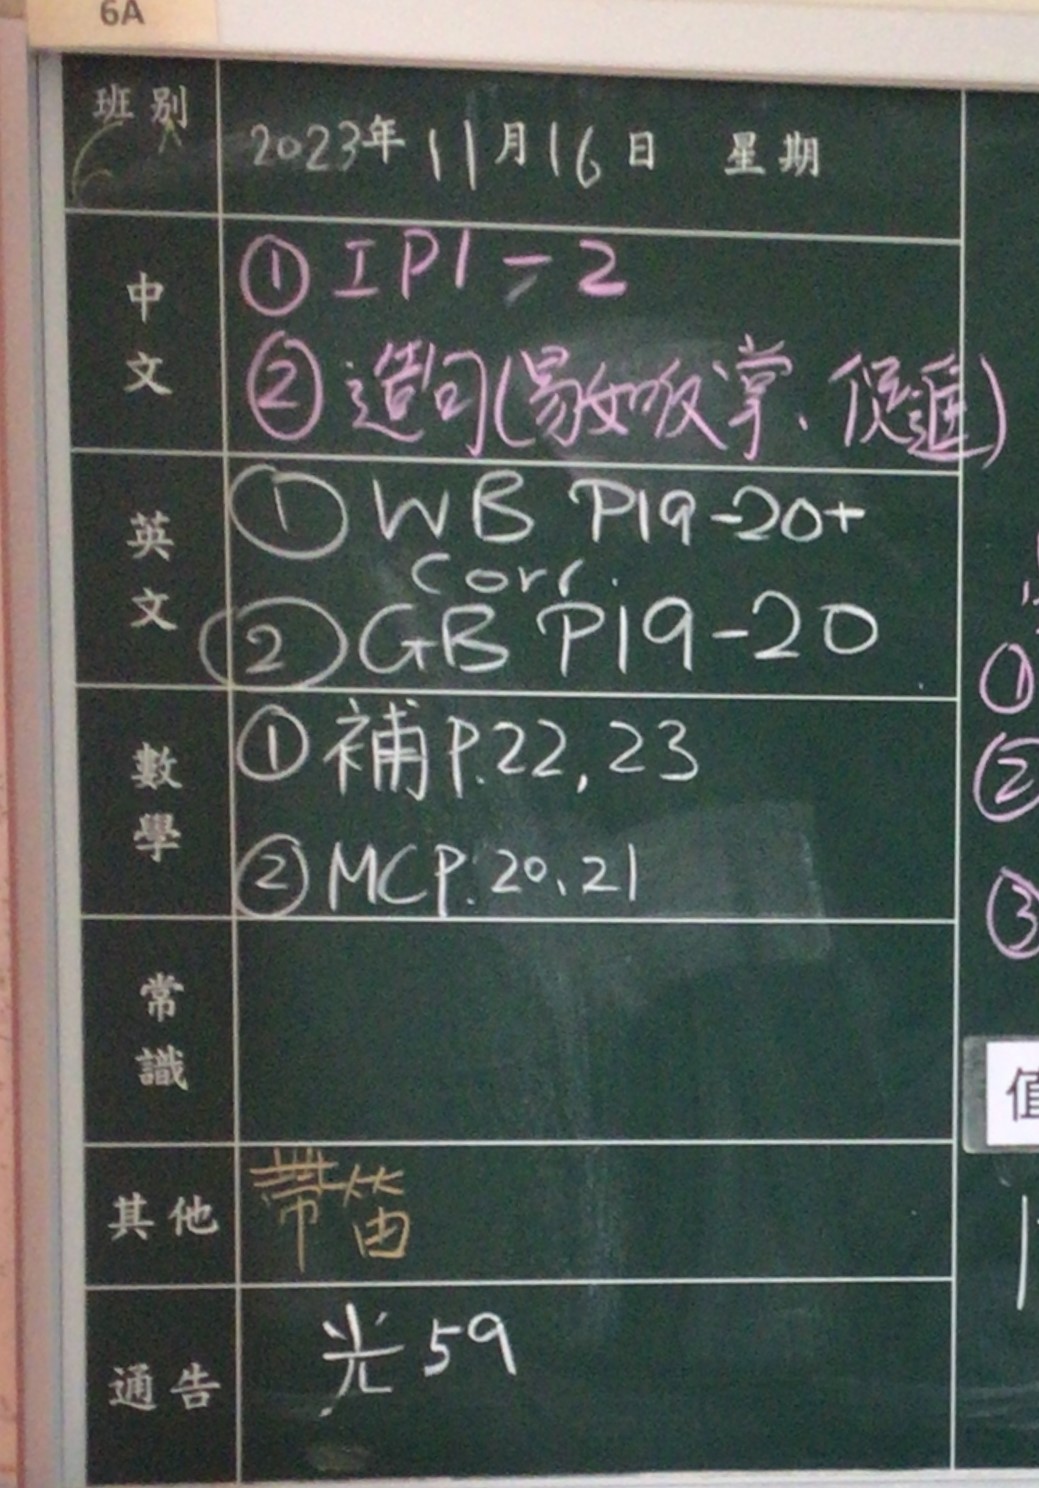 6A
班別
6A
2023年11月16日 星期
中文
① 工P1-2
② 造句(易如反掌、促進)
英文
① WB P19-20+
Corr.
② GB P19-20
數學
① 補P.22,23
② MCP.20、21
常識
其他
帶笛
通告
光59
①
②
③
值